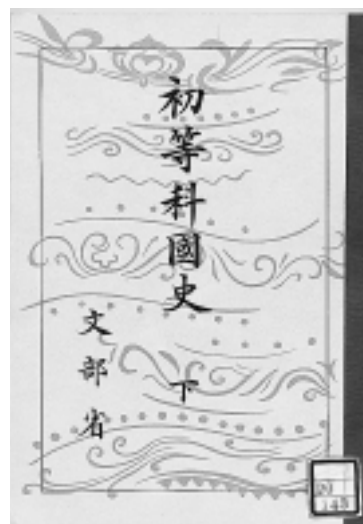 初等科國史
下
文部省